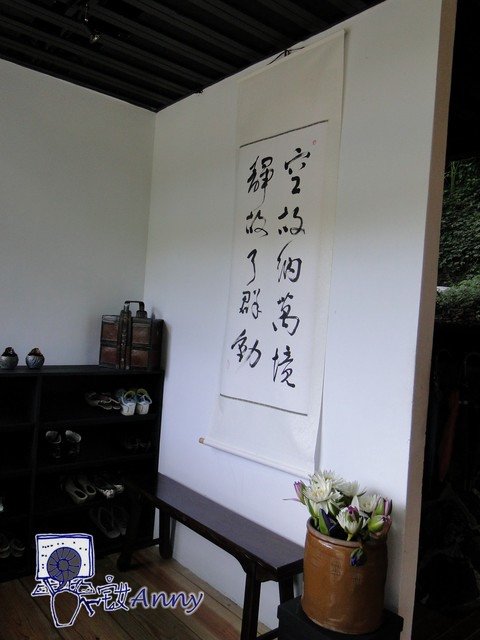 空故納萬境
靜故了群動
宅女Anny